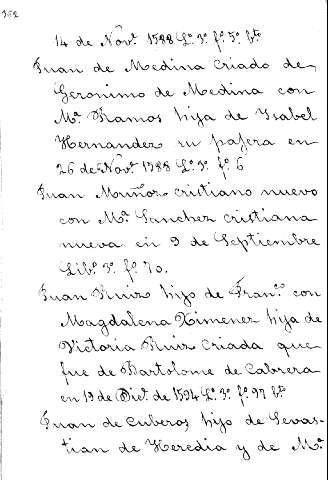 362
14 de Nov.e 1588 L.o 3.o f.o 5.o b.to
Juan de Medina criado de
Geronimo de Medina con
M.a Ramos hija de Ysabel
Hernandez su pajera en
26 de Nov.e 1588 L.o 3.o f.o 6
Juan Muñoz cristiano nuevo
con M.a Sanchez cristiana
nueva en 9 de Septiembre
Lib.o 3.o f.o 70.
Juan Ruiz hijo de Fran.co con
Magdalena Ximenez hija de
Victoria Ruiz criada que
fue de Bartolome de Cabrera
en 19 de Dic.e de 1594 L.o 3.o f.o 97 b.to
Juan de Cuberos hijo de Sevas-
tian de Heredia y de M.a